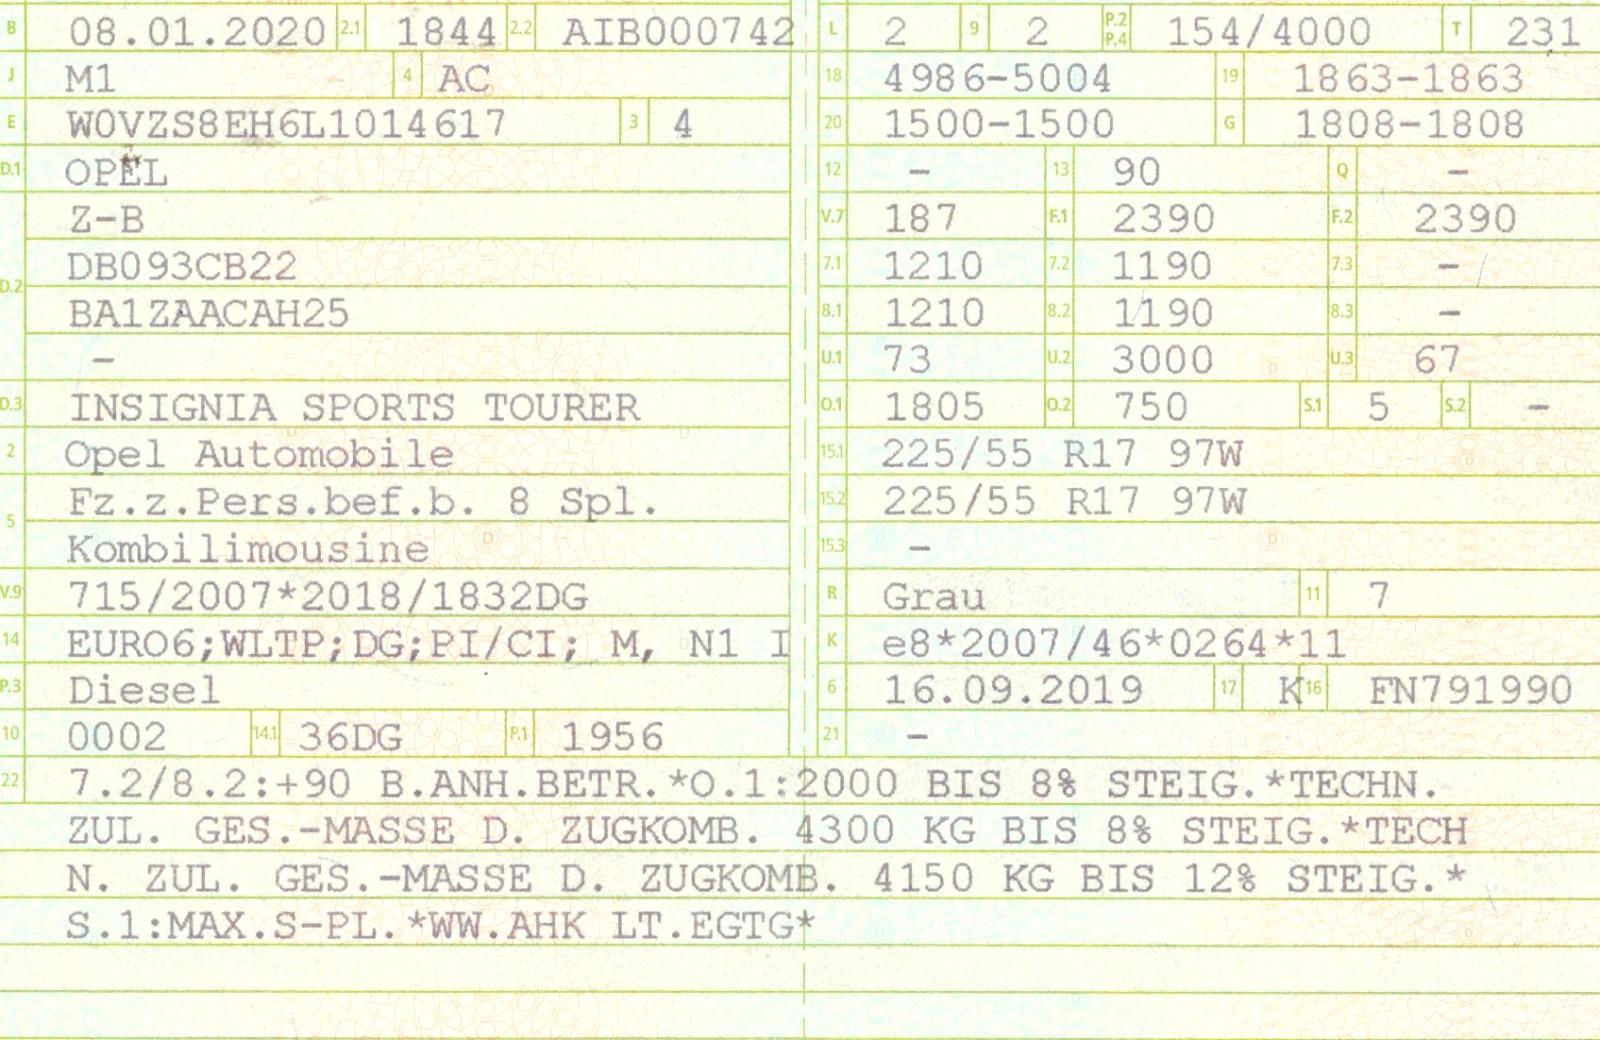 B 08.01.2020 2.1 1844 2.2 AIB000742 L 2 9 2 P.2 P.4 154/4000 T 231
J M1 4 AC 18 4986-5004 19 1863-1863
E W0VZS8EH6L1014617 3 4 20 1500-1500 G 1808-1808
D.1 OPEL 12 - 13 90 Q -
Z-B V.7 187 F.1 2390 F.2 2390
D.2 DB093CB22 7.1 1210 7.2 1190 7.3 -
BA1ZAACAH25 8.1 1210 8.2 1190 8.3 -
- U.1 73 U.2 3000 U.3 67
D.3 INSIGNIA SPORTS TOURER O.1 1805 O.2 750 S.1 5 S.2 -
2 Opel Automobile 15.1 225/55 R17 97W
5 Fz.z.Pers.bef.b. 8 Spl. 15.2 225/55 R17 97W
Kombilimousine 15.3 -
V.9 715/2007*2018/1832DG R Grau 11 7
14 EURO6;WLTP;DG;PI/CI; M, N1 I K e8*2007/46*0264*11
P.3 Diesel 6 16.09.2019 17 K 16 FN791990
10 0002 14.1 36DG P.1 1956 21 -
22 7.2/8.2:+90 B.ANH.BETR.*O.1:2000 BIS 8% STEIG.*TECHN.
ZUL. GES.-MASSE D. ZUGKOMB. 4300 KG BIS 8% STEIG.*TECH
N. ZUL. GES.-MASSE D. ZUGKOMB. 4150 KG BIS 12% STEIG.*
S.1:MAX.S-PL.*WW.AHK LT.EGTG*